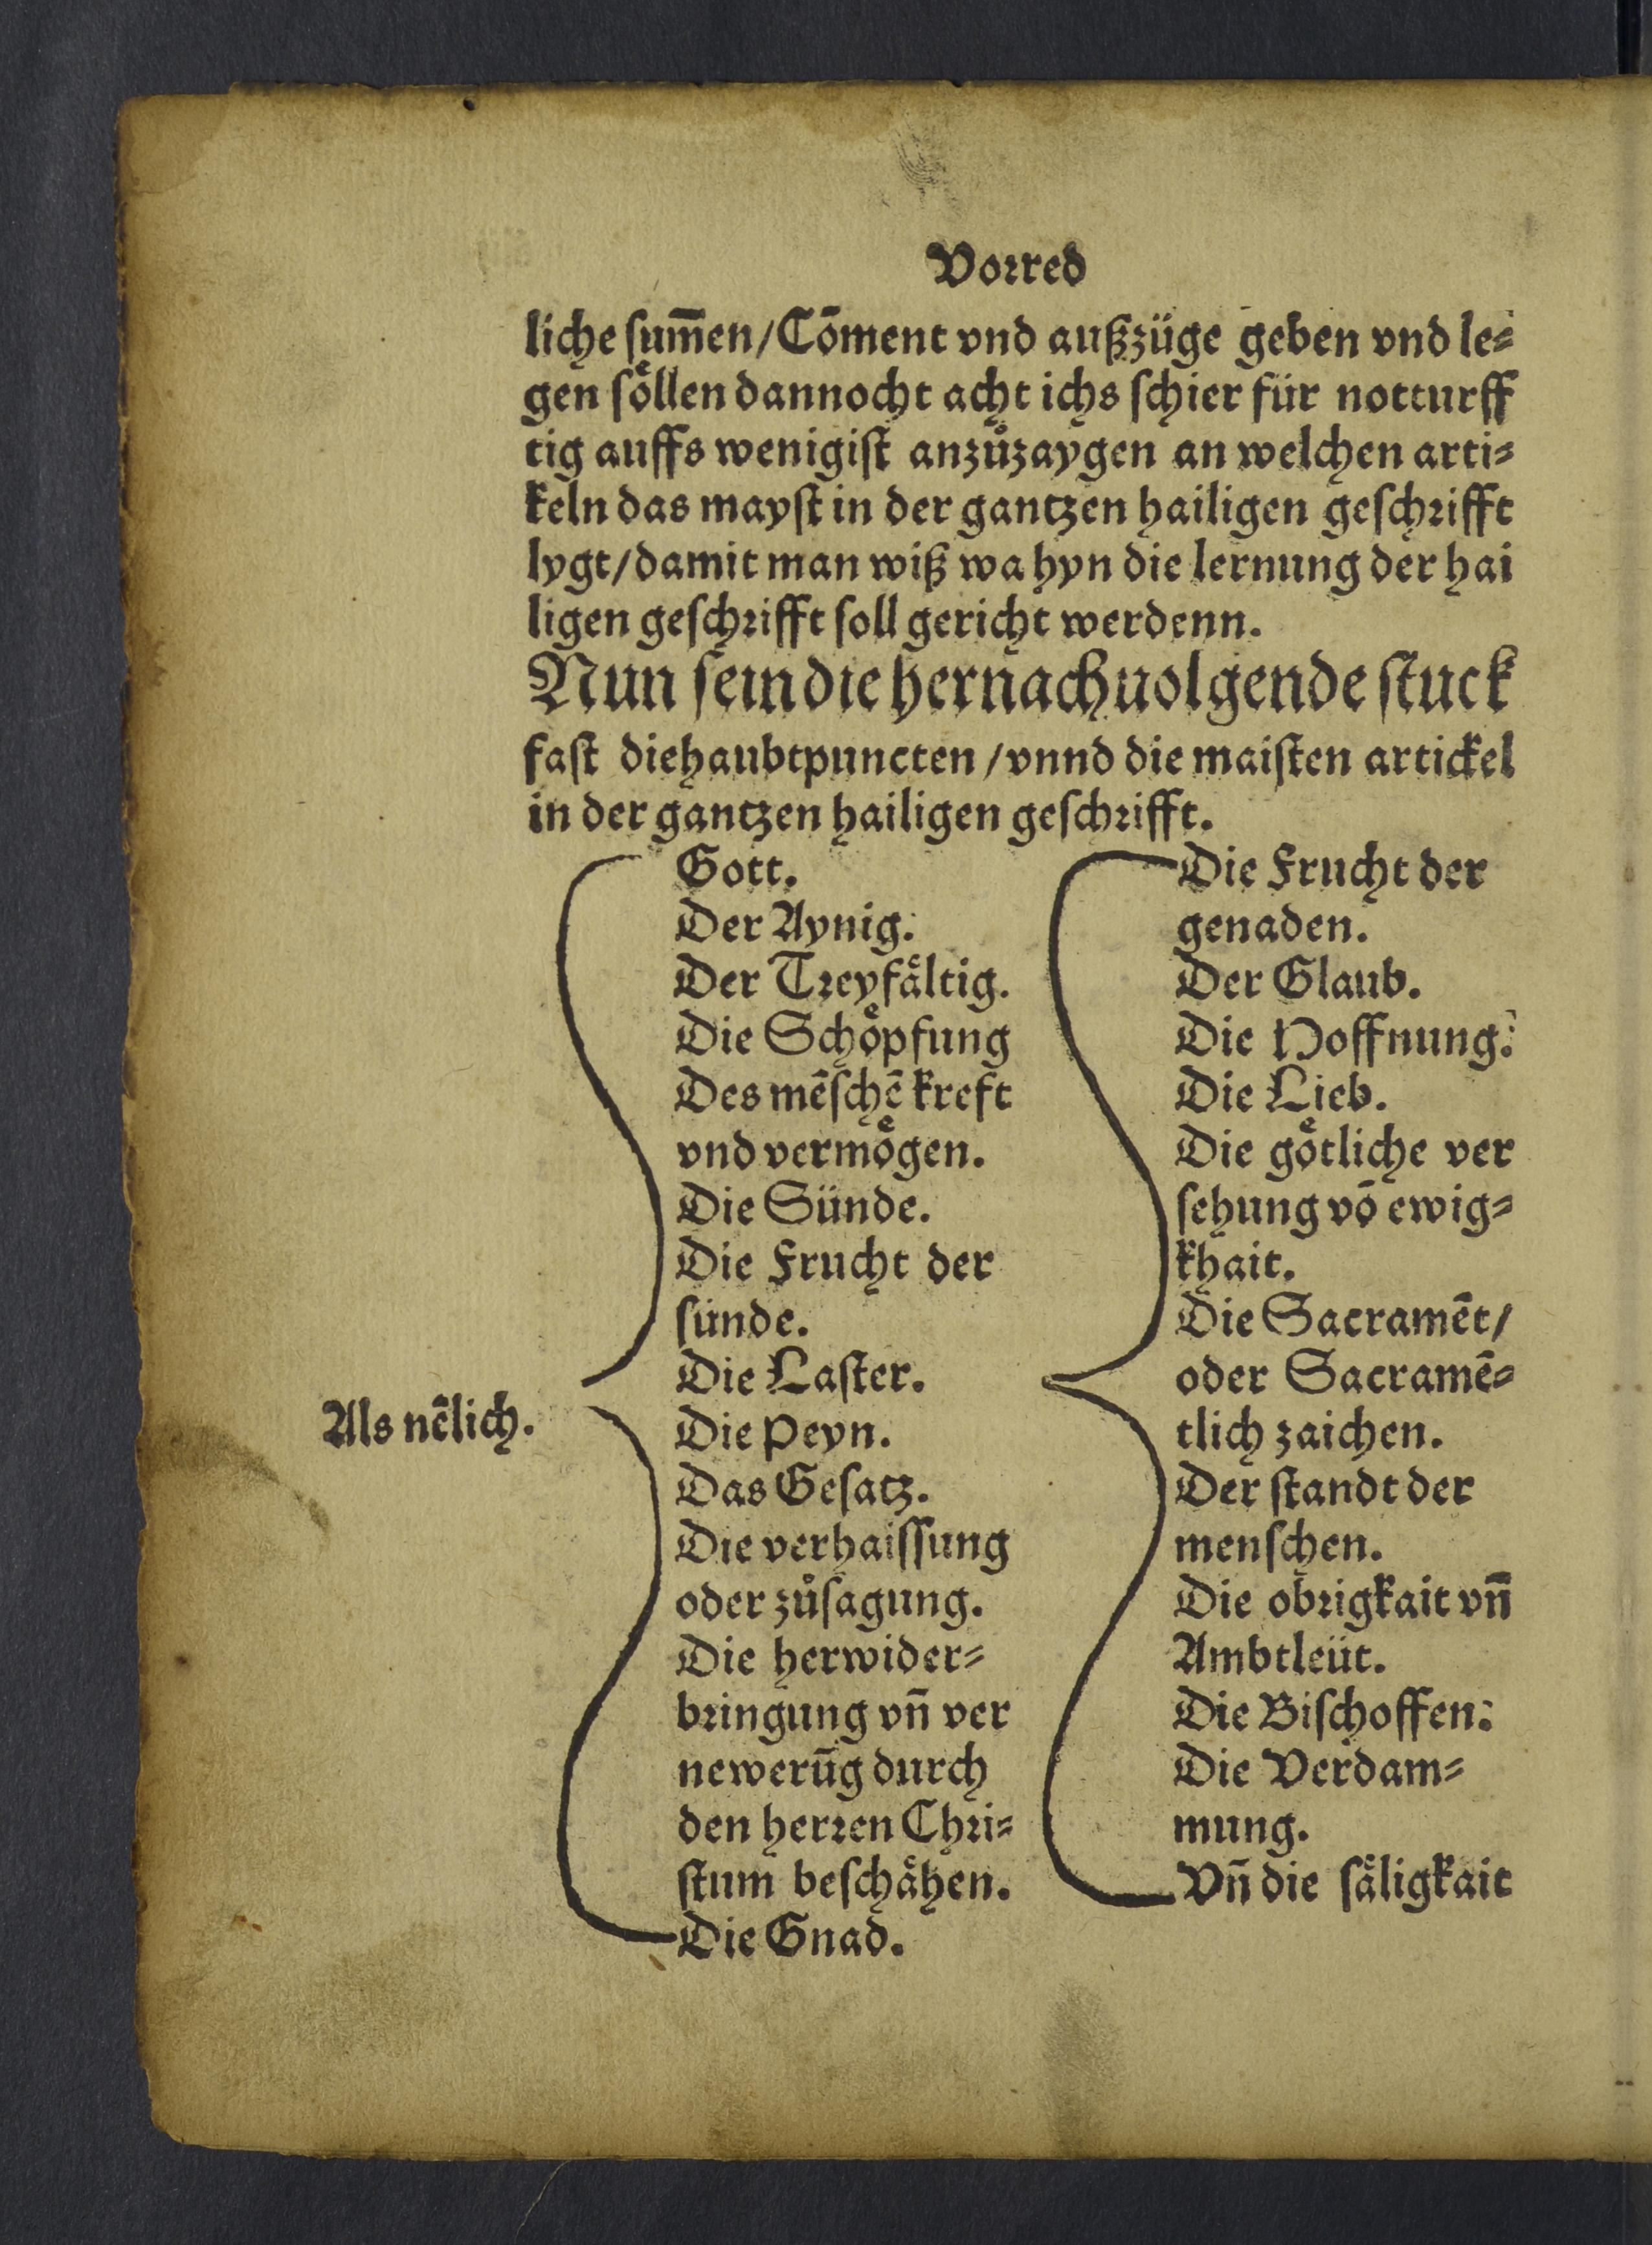 Vorred
liche sum̄en/Cōment vnd außzüge geben vnd le⸗
gen soͤllen dannocht acht ichs schier für notturff
tig auffs wenigist anzůzaygen an welchen arti⸗
keln das mayst in der gantzen hailigen geschrifft
lygt/damit man wiß wa hyn die lernung der hai
ligen geschrifft soll gericht werdenn.
Nun sein die hernachuolgende stuck
fast diehaubtpuncten/vnnd die maisten artickel
in der gantzen hailigen geschrifft.
Als nēlich.
Gott.
Der Aynig.
Der Treyfaͤltig.
Die Schoͤpfung
Des mēschē kreft
vnd vermoͤgen.
Die Sünde.
Die Frucht der
sünde.
Die Laster.
Die Peyn.
Das Gesatz.
Die verhaissung
oder zůsagung.
Die herwider⸗
bringung vn̄ ver
newerūg durch
den herren Chri⸗
stum beschaͤhen.
Die Gnad.
Die Frucht der
genaden.
Der Glaub.
Die Hoffnung.
Die Lieb.
Die goͤtliche ver
sehung vō ewig⸗
khait.
Die Sacramēt/
oder Sacramē⸗
tlich zaichen.
Der standt der
menschen.
Die obrigkait vn̄
Ambtleüt.
Die Bischoffen.
Die Verdam⸗
mung.
Vn̄ die saͤligkait